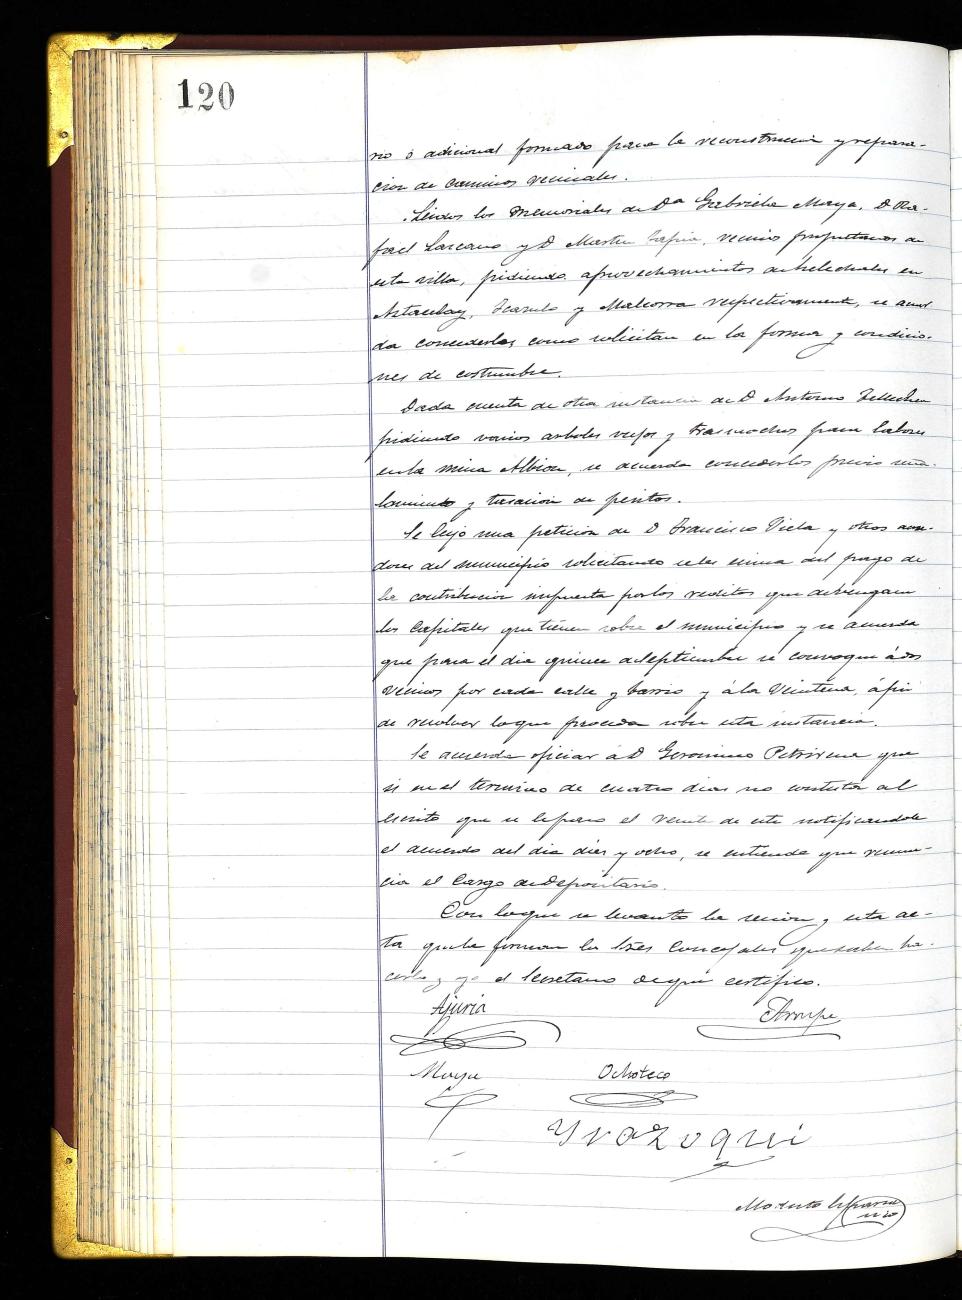 120
rio ó adicional formado para la reconstruccion y repara-
cion de caminos vecinales.
Leidos los memoriales de Da Gabriela Maya, D Ra-
fael Lazcano y D Martin Tapia, vecinos propietarios de
esta villa, pidiendo aprovechamientos de helechales en
y respectivamente, se acuer
da concederles como solicitan en la forma y condicio-
nes de costumbre.
Dada cuenta de otra instancia de D Antonio Tellechea
pidiendo varios arboles viejos y trasmochos para labores
en la mina Albion, se acuerda concederlos previo seña-
lamiento y tasacion de peritos.
Se leyó una peticion de D Francisco Viela y otros acree-
dores del municipio solicitando se les exima del pago de
la contribucion impuesta por los reditos que debengan
los capitales que tienen sobre el municipio y se acuerda
que para el dia quince de Septiembre se convoque á dos
vecinos por cada calle y barrio y á la Veintena, á fin
de resolver lo que proceda sobre esta instancia.
Se acuerda oficiar á D Geronimo Petrirena que
si en el termino de cuatro dias no contesta al
escrito que se le paso el veinte de este notificandole
el acuerdo del dia diez y ocho, se entiende que renun-
cia el cargo de Depositario.
Con lo que se levantó la sesion y esta ac-
ta que la firman los tres Concejales que saben ha-
cerlo y yo el Secretario de que certifico.
Ajuria Arrupe
Maya Ochoteco
Yrazoqui
Modesto